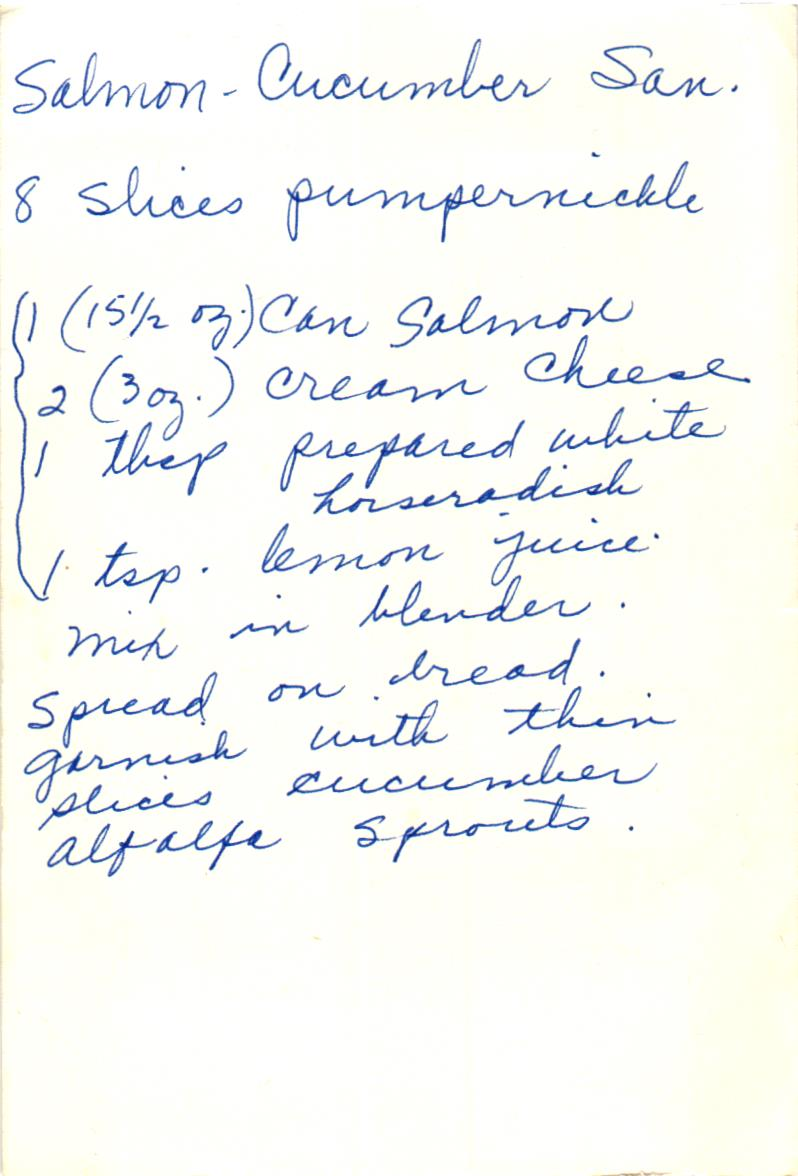 Salmon - Cucumber San.
8 slices pumpernickle
1 (15 1/2 oz.) Can Salmon
2 (3 oz.) cream cheese
1 tbsp prepared white
horseradish
1 tsp. lemon juice.
mix in blender.
Spread on bread.
garnish with thin
slices cucumber
alfalfa sprouts.